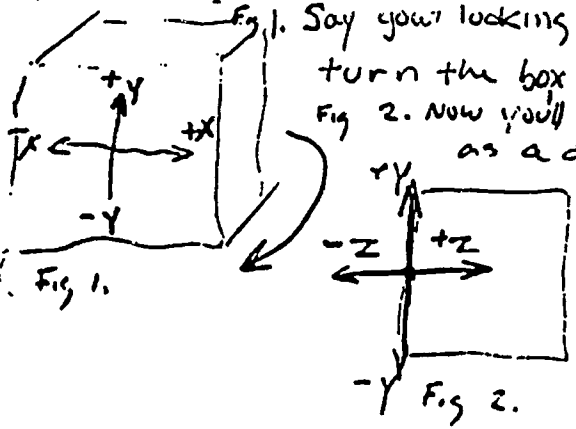 Fig 1. Say your looking
turn the box
Fig 2. Now you'll
as a
+Y
-X
+X
-Y
Fig 1.
+Y
-Z
+Z
-Y
Fig 2.